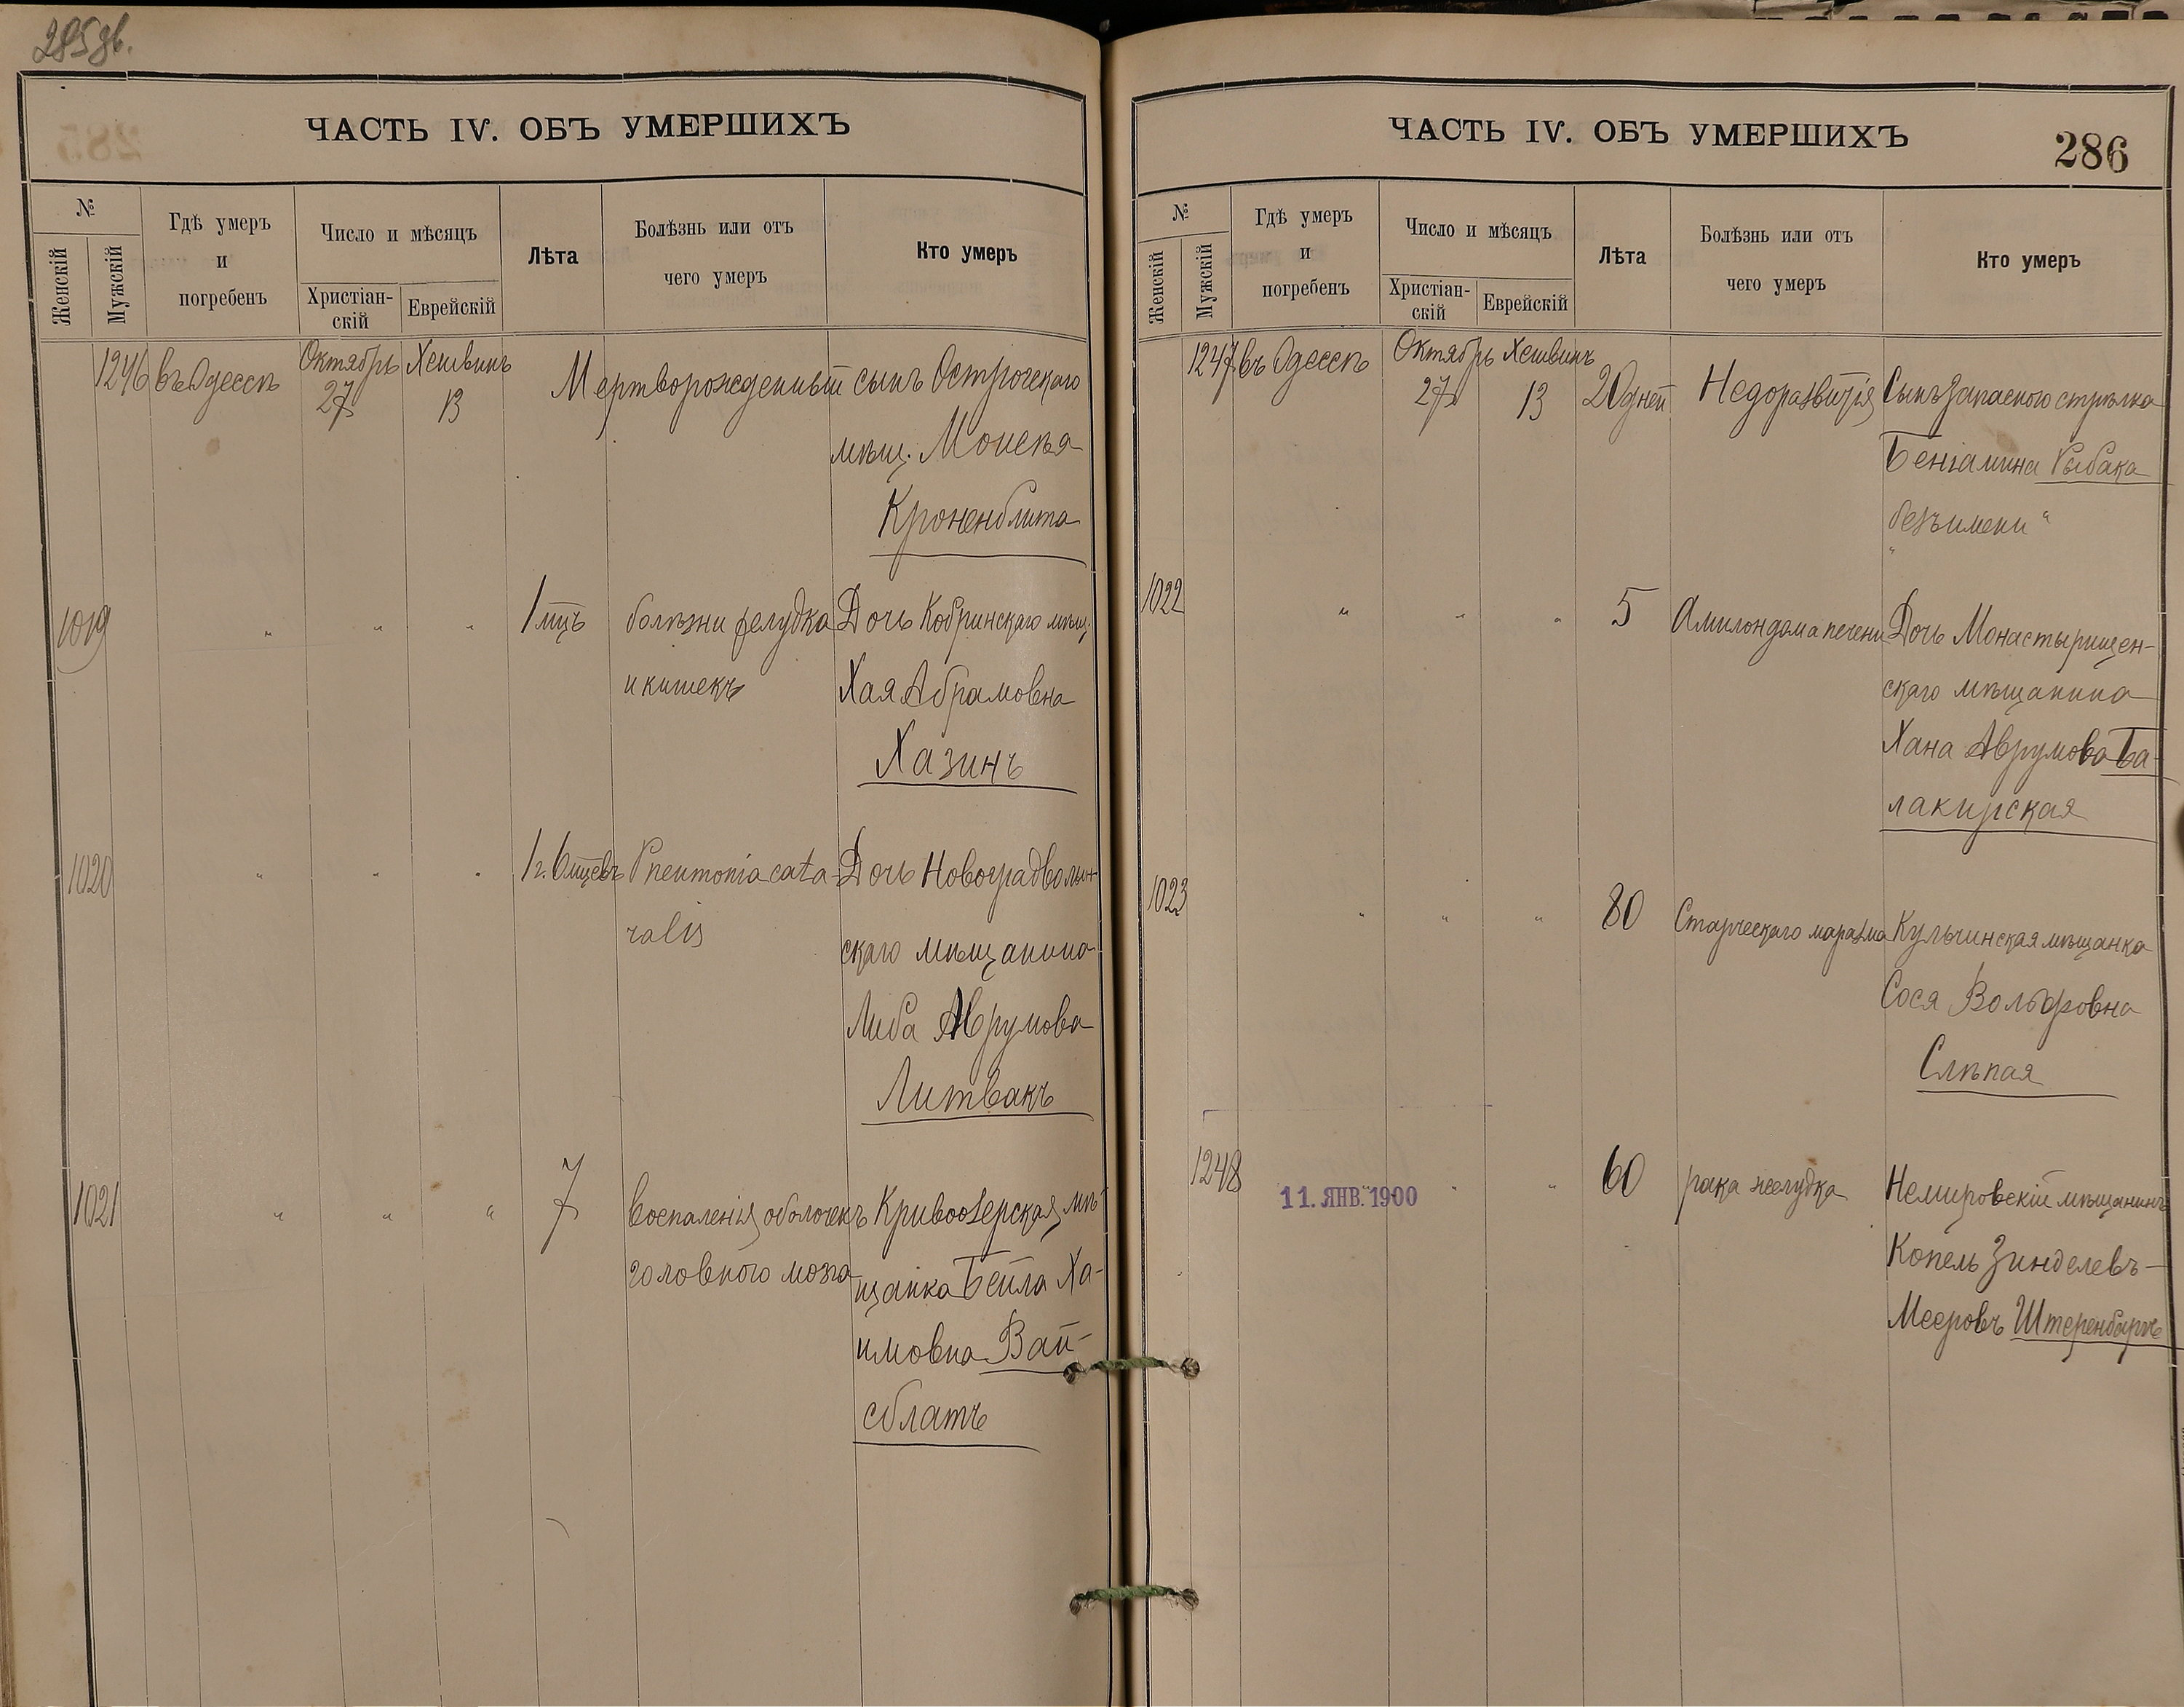 285 об.
ЧАСТЬ IV. ОБЪ УМЕРШИХЪ
№
Женскій
Мужскій
Гдѣ умеръ
и
погребенъ
Число и мѣсяцъ
Христіан-
скій
Еврейскій
Лѣта
Болѣзнь или отъ
чего умеръ
Кто умеръ
1246 въ Одессѣ Октябрь 27 Хешвинъ 13 Мертворожденный сынъ Острогскаго
мѣщ. Моисея
Кроненблита
1019 " " " 1 мцъ болѣзни желудка Дочь Кобринскаго мѣщ.
и кишекъ Хая Абрамовна
Хазинъ
1020 " " " 1 г. 6 мцевъ Pneumonia cata- Дочь Новоградволын-
ralis скаго мѣщанина
Либа Аврумова
Литвакъ
1021 " " " 7 воспаленія оболочекъ Кривоозерская мѣ-
головного мозга щанка Бейла Ха-
имовна Вай-
сблатъ
ЧАСТЬ IV. ОБЪ УМЕРШИХЪ
286
№
Женскій
Мужскій
Гдѣ умеръ
и
погребенъ
Число и мѣсяцъ
Христіан-
скій
Еврейскій
Лѣта
Болѣзнь или отъ
чего умеръ
Кто умеръ
1247 въ Одессѣ Октябрь 27 Хешвинъ 13 20 дней Недоразвитія Сынъ Запасного стрѣлка
Беніамина Рыбака
"безъ имени"
1022 " " " 5 Амилоидома печени Дочь Монастырищен-
скаго мѣщанина
Хана Аврумова Ба-
лакирская
1023 " " " 80 Старческаго маразма Кульчинская мѣщанка
Сося Вольфовна
Слѣпая
1248 11. ЯНВ. 1900 " " 60 рака желудка Немировскій мѣщанинъ
Копель Зинделевъ-
Мееровъ Штеренбергъ